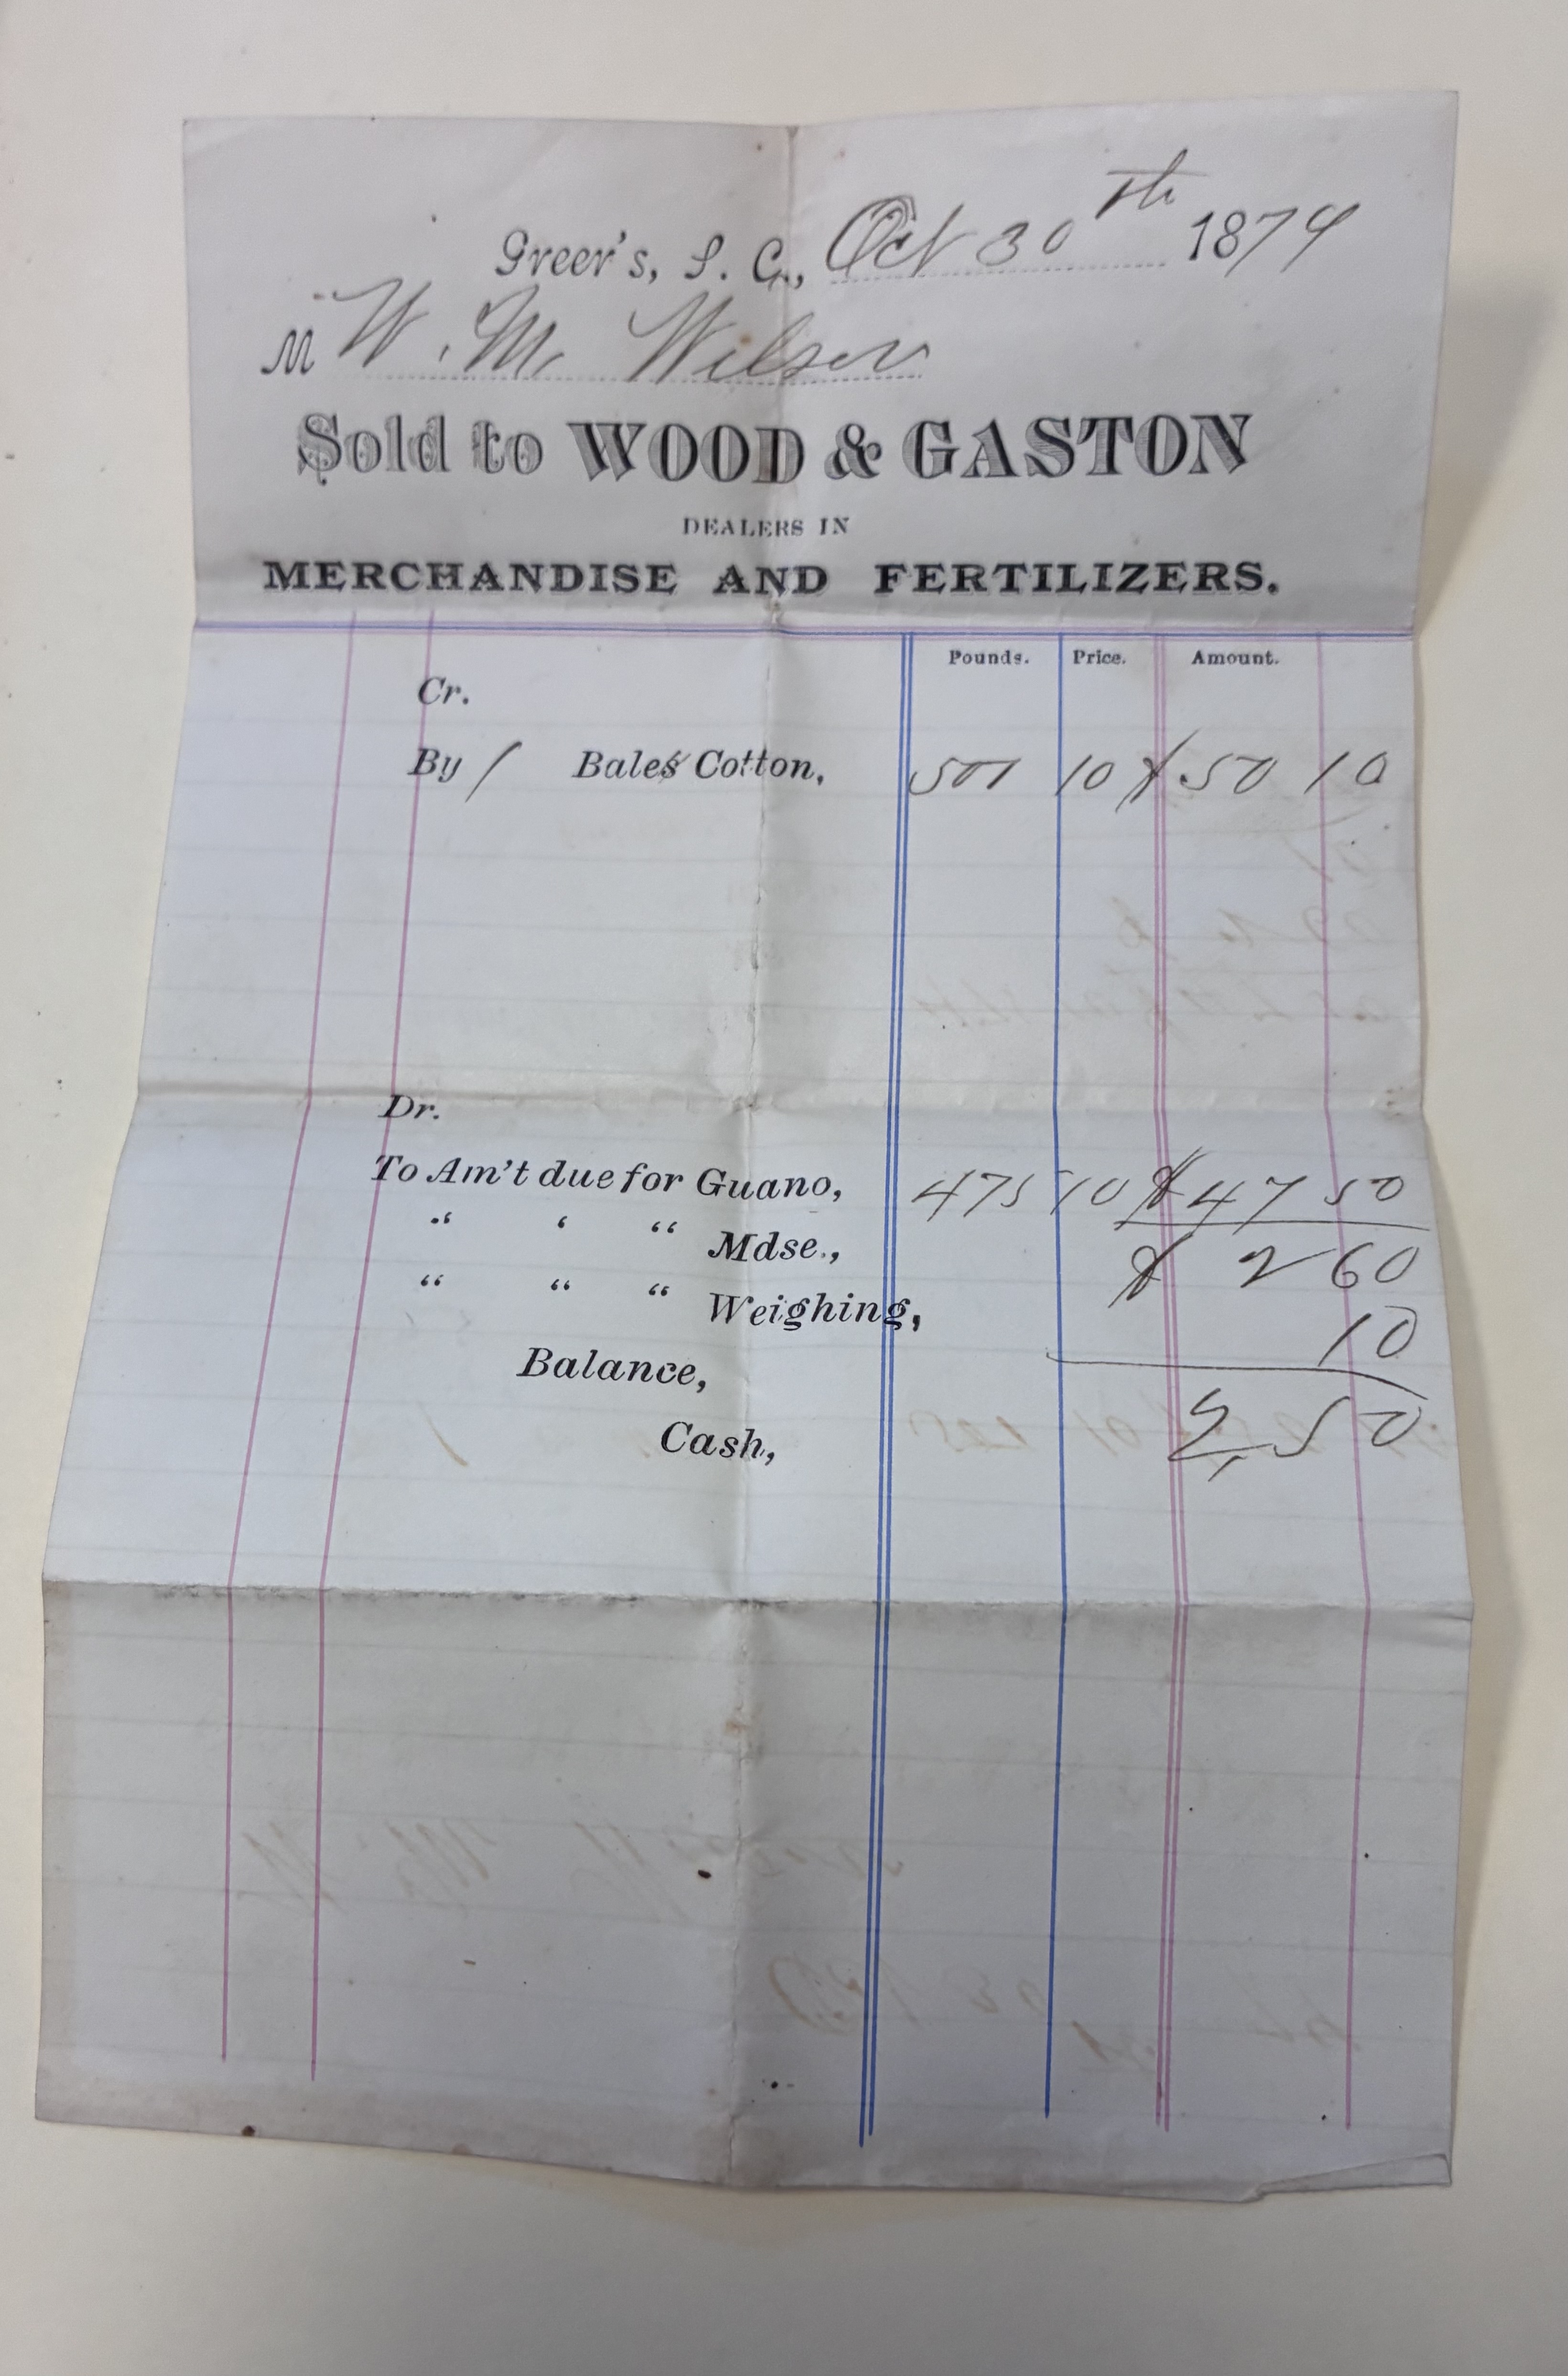 Greer's, S. C., Oct 30th 1879
M W. M. Wilson
Sold to WOOD & GASTON
DEALERS IN
MERCHANDISE AND FERTILIZERS.
Pounds. Price. Amount.
Cr.
By 1 Bales Cotton, 501 10 $ 50 10
Dr.
To Am't due for Guano, 475 10 $ 47 50
“ “ “ Mdse., $ 2 60
“ “ “ Weighing, 10
Balance,
Cash, 2,50